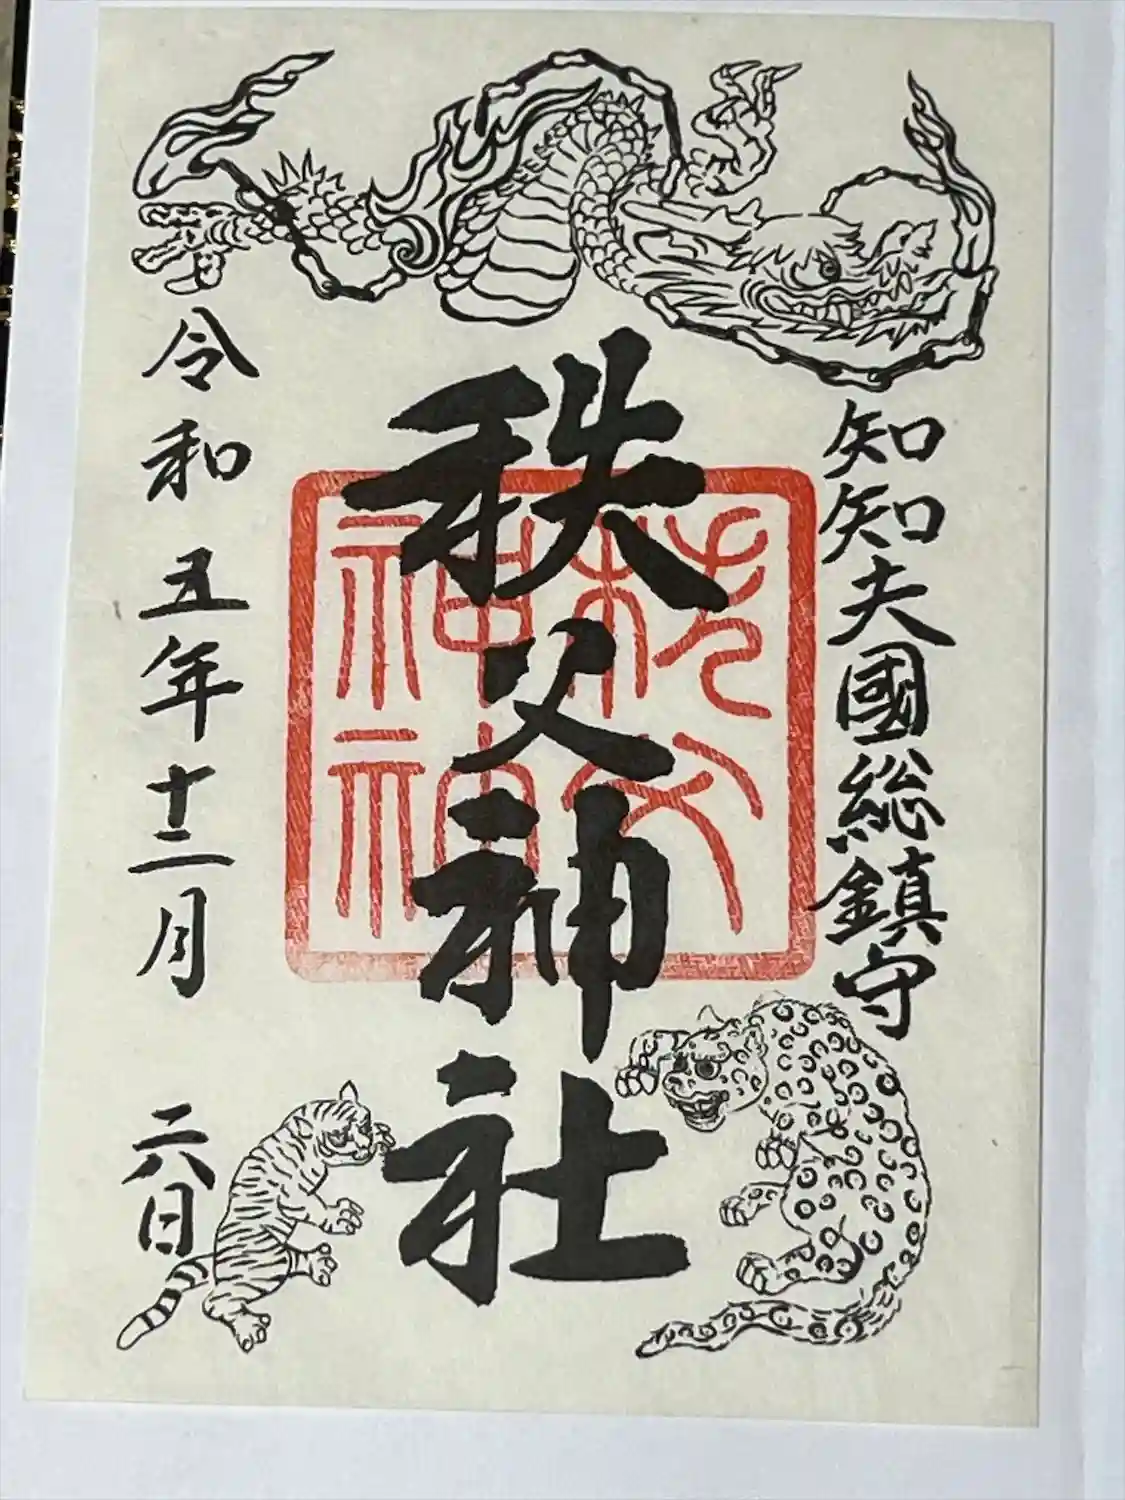 知知夫國総鎮守
秩父神社
秩父
神社
令和五年十二月二六日